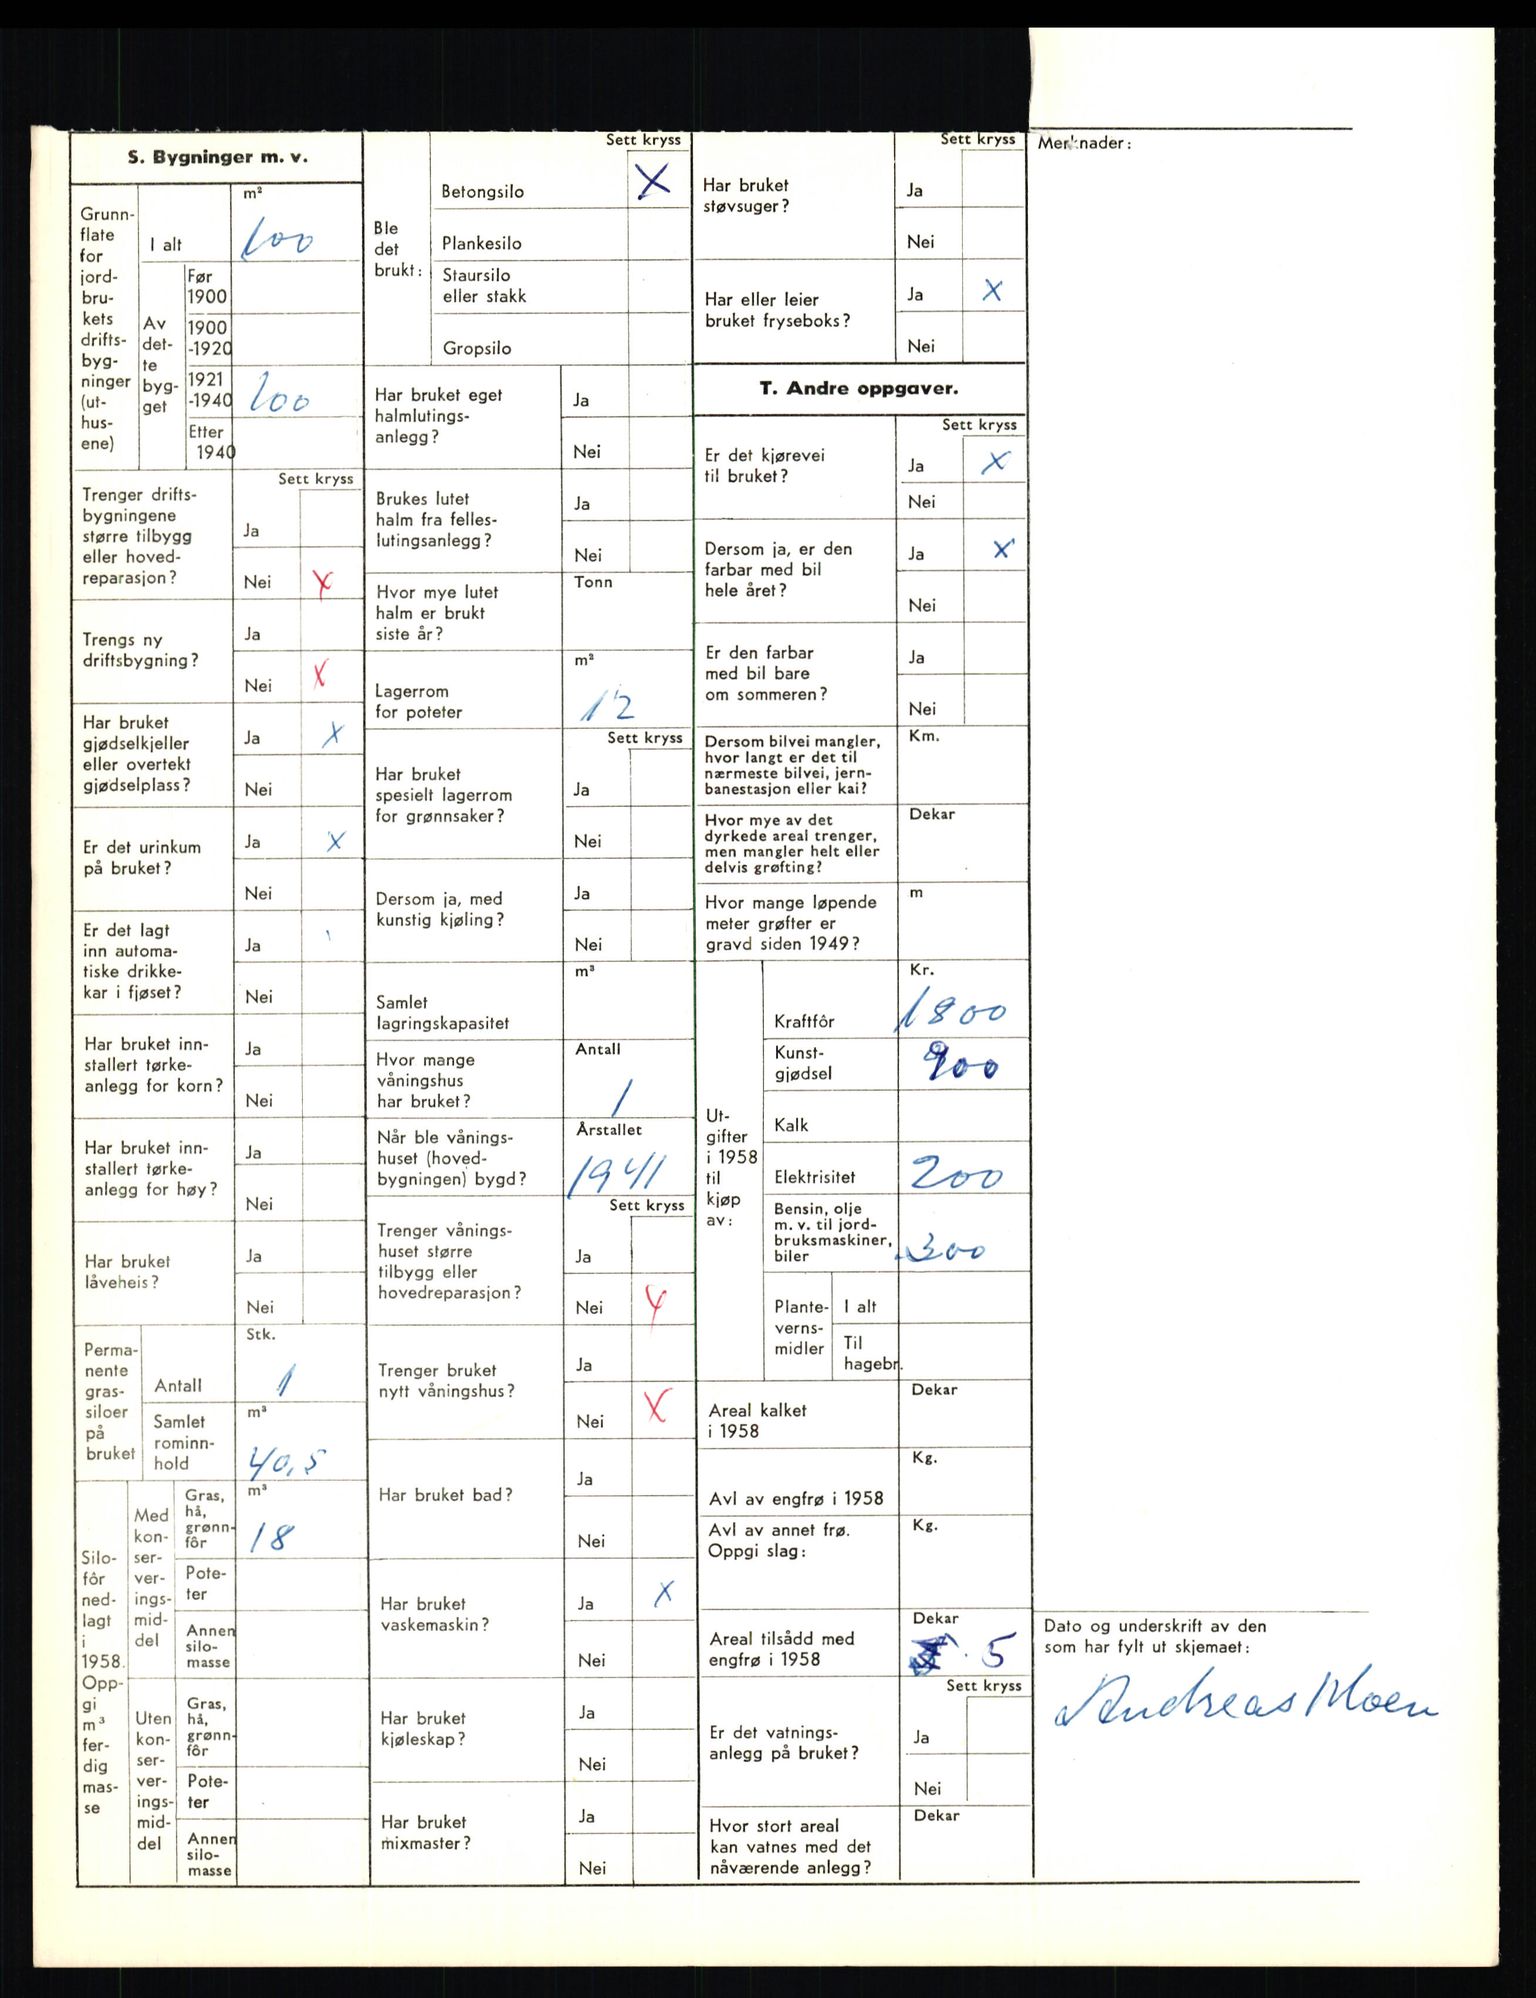 S. Bygninger m. v.
Grunn-
flate
for
jord-
bru-
kets
drifts-
byg-
ninger
(ut-
hus-
ene)
I alt
m²
100
Av
det-
te
byg-
get
Før
1900
1900
-1920
1921
-1940
100
Etter
1940
Sett kryss
Trenger drifts-
bygningene
større tilbygg
eller hoved-
reparasjon?
Ja
Nei X
Trengs ny
driftsbygning?
Ja
Nei X
Har bruket
gjødselkjeller
eller overtekt
gjødselplass?
Ja X
Nei
Er det urinkum
på bruket?
Ja X
Nei
Er det lagt
inn automa-
tiske drikke-
kar i fjøset?
Ja
Nei
Har bruket inn-
stallert tørke-
anlegg for korn?
Ja
Nei
Har bruket inn-
stallert tørke-
anlegg for høy?
Ja
Nei
Har bruket
låveheis?
Ja
Nei
Perma-
nente
gras-
siloer
på
bruket
Antall
Stk.
1
Samlet
rominn-
hold
m³
40,5
Silo-
fôr
ned-
lagt
i
1958.
Opp-
gi
m³
fer-
dig
mas-
se
Med
kon-
ser-
ver-
ings-
mid-
del
Gras,
hå,
grønn-
fôr
m³
18
Pote-
ter
Annen
silo-
masse
Uten
kon-
ser-
ver-
ings-
mid-
del
Gras,
hå,
grønn-
fôr
Pote-
ter
Annen
silo-
masse
Ble
det
brukt:
Sett kryss
Betongsilo X
Plankesilo
Staursilo
eller stakk
Gropsilo
Har bruket eget
halmlutings-
anlegg?
Ja
Nei
Brukes lutet
halm fra felles-
lutingsanlegg?
Ja
Nei
Hvor mye lutet
halm er brukt
siste år?
Tonn
Lagerrom
for poteter
m²
12
Sett kryss
Har bruket
spesielt lagerrom
for grønnsaker?
Ja
Nei
Dersom ja, med
kunstig kjøling?
Ja
Nei
Samlet
lagringskapasitet
m³
Hvor mange
våningshus
har bruket?
Antall
1
Når ble vånings-
huset (hoved-
bygningen) bygd?
Årstallet
1941
Sett kryss
Trenger vånings-
huset større
tilbygg eller
hovedreparasjon?
Ja
Nei X
Trenger bruket
nytt våningshus?
Ja
Nei X
Har bruket bad?
Ja
Nei
Har bruket
vaskemaskin?
Ja X
Nei
Har bruket
kjøleskap?
Ja
Nei
Har bruket
mixmaster?
Ja
Nei
Sett kryss
Har bruket
støvsuger?
Ja
Nei
Har eller leier
bruket fryseboks?
Ja X
Nei
T. Andre oppgaver.
Sett kryss
Er det kjørevei
til bruket?
Ja X
Nei
Dersom ja, er den
farbar med bil
hele året?
Ja X
Nei
Er den farbar
med bil bare
om sommeren?
Ja
Nei
Dersom bilvei mangler,
hvor langt er det til
nærmeste bilvei, jern-
banestasjon eller kai?
Km.
Hvor mye av det
dyrkede areal trenger,
men mangler helt eller
delvis grøfting?
Dekar
Hvor mange løpende
meter grøfter er
gravd siden 1949?
m
Ut-
gifter
i 1958
til
kjøp
av:
Kr.
Kraftfôr 1800
Kunst-
gjødsel 900
Kalk
Elektrisitet 200
Bensin, olje
m. v. til jord-
bruksmaskiner,
biler 300
Plante-
verns-
midler
I alt
Til
hagebr.
Areal kalket
i 1958
Dekar
Avl av engfrø i 1958
Kg.
Avl av annet frø.
Oppgi slag:
Kg.
Areal tilsådd med
engfrø i 1958
Dekar
5
Sett kryss
Er det vatnings-
anlegg på bruket?
Ja
Nei
Hvor stort areal
kan vatnes med det
nåværende anlegg?
Dekar
Merknader:
Dato og underskrift av den
som har fylt ut skjemaet:
Andreas Moen